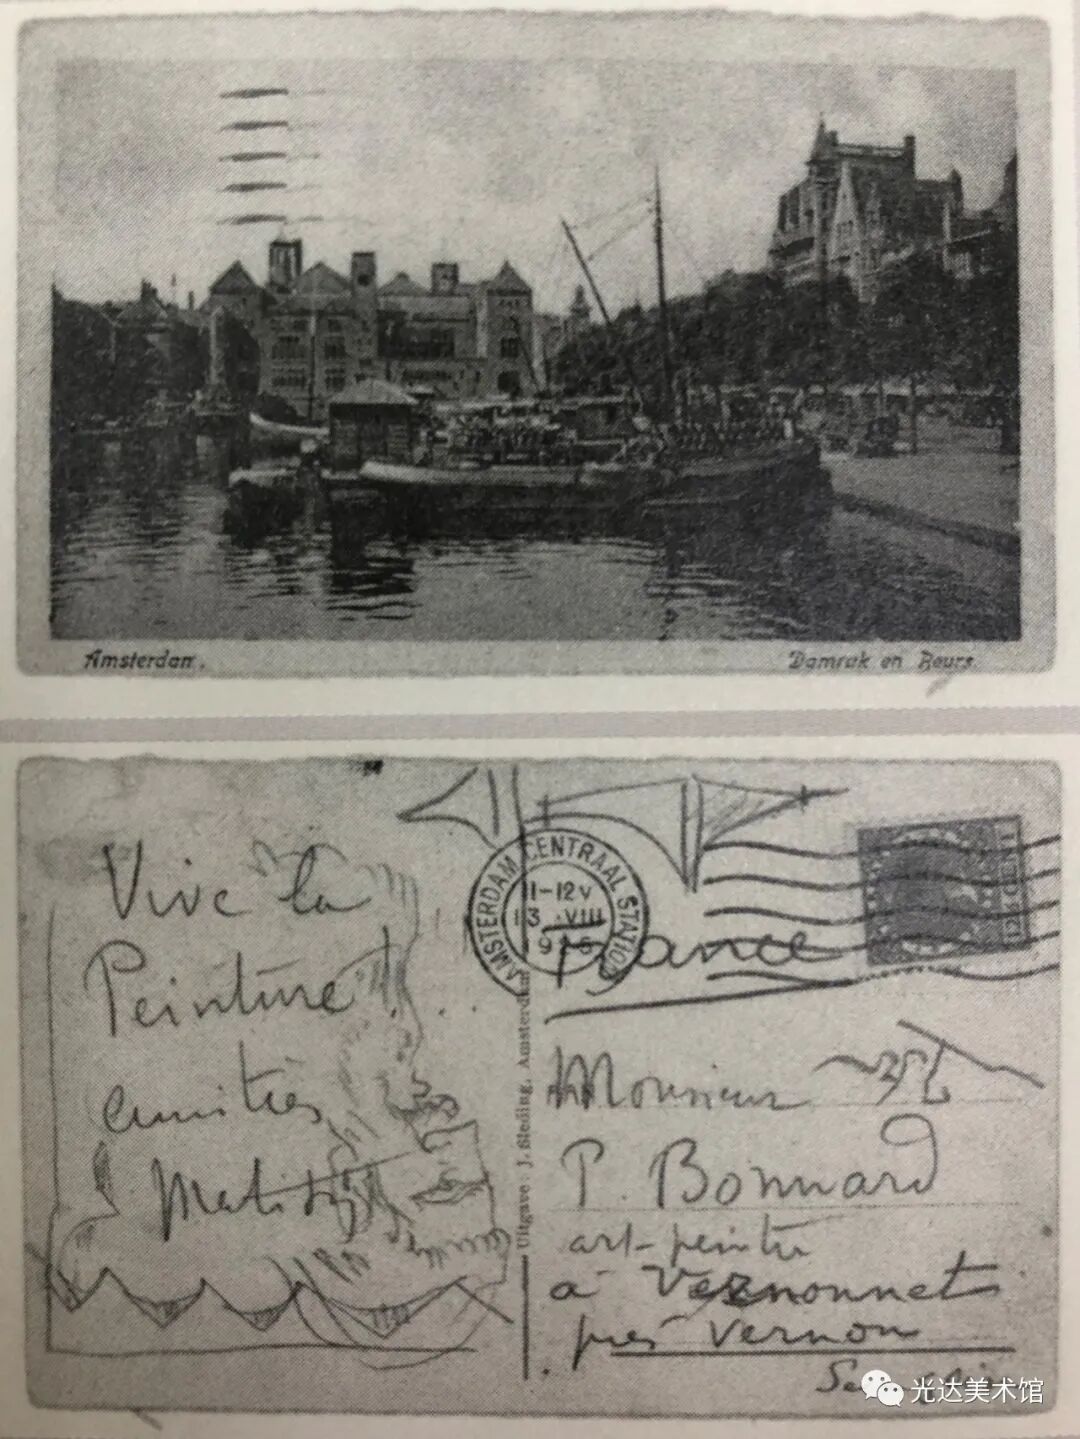 Amsterdam.
Damrak en Beurs.
Vive la
Peinture!
amitiés
Matisse
AMSTERDAM CENTRAAL STATION
11-12V
13 VIII
France
12½ CENT
Uitgave: J. Sleding, Amsterdam
Monsieur
P. Bonnard
art-peintre
à Vernonnet
près Vernon
光达美术馆